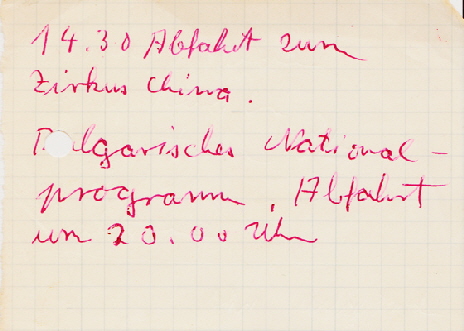 14.30 Abfahrt zum
Zirkus China.
Bulgarisches National-
programm, Abfahrt
um 20.00 Uhr